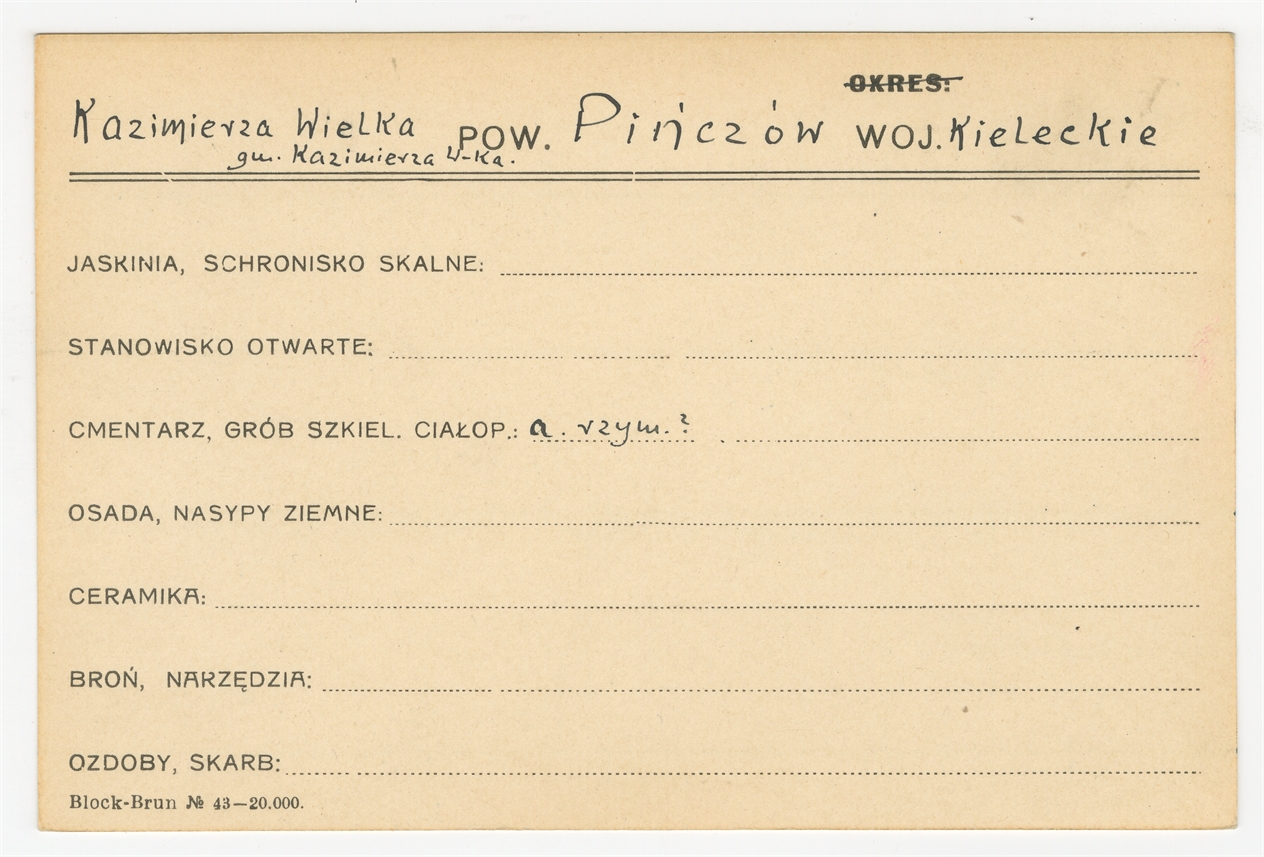 OKRES:
Kazimierza Wielka POW. Pińczów WOJ. Kieleckie
gm. Kazimierza W-Ka.
JASKINIA, SCHRONISKO SKALNE:
STANOWISKO OTWARTE:
CMENTARZ, GRÓB SZKIEL. CIAŁOP.: a. rzym.?
OSADA, NASYPY ZIEMNE:
CERAMIKA:
BROŃ, NARZĘDZIA:
OZDOBY, SKARB:
Block-Brun № 43—20.000.